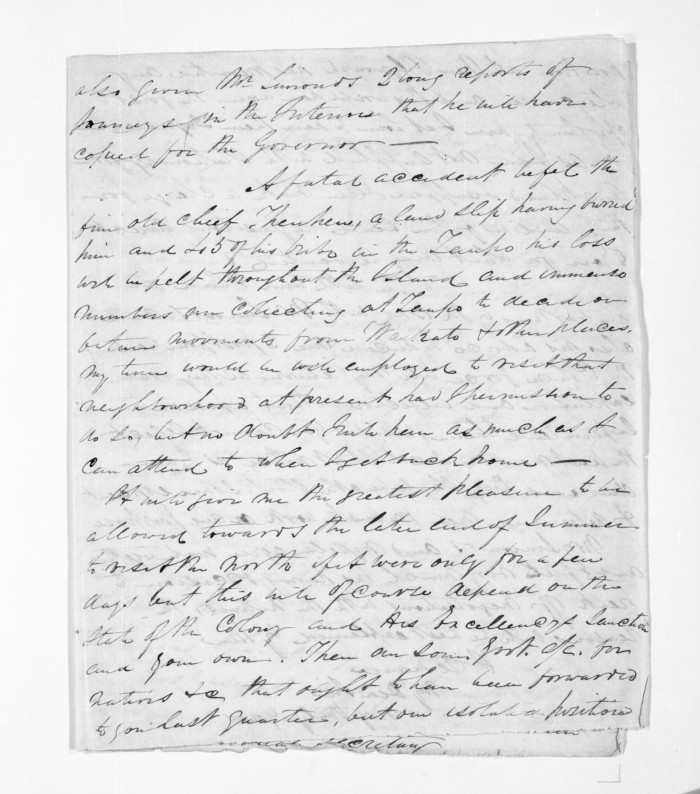 also given Mr Simonds 2 long reports of
journeys in the Interior that he will have
copied for the Governor —
A fatal accident befel the
fine old chief Theuheu, a land slip having buried
him and 45 of his tribe in the Taupo his loss
will be felt throughout the Island and immense
numbers are collecting at Taupo to decide on
future movements from Waikato & other places.
my time would be well employed to visit that
neighbourhood at present had I permission to
do so, but no doubt I will hear as much as I
can attend to when I get back home —
It will give me the greatest pleasure to be
allowed towards the later end of Summer
to visit the North if it were only for a few
days but this will of course depend on the
State of the Colony and His Excellencys sanction
and your own. There are some for
natives &c that ought to have been forwarded
to you last quarter, but our isolated position
Secretary